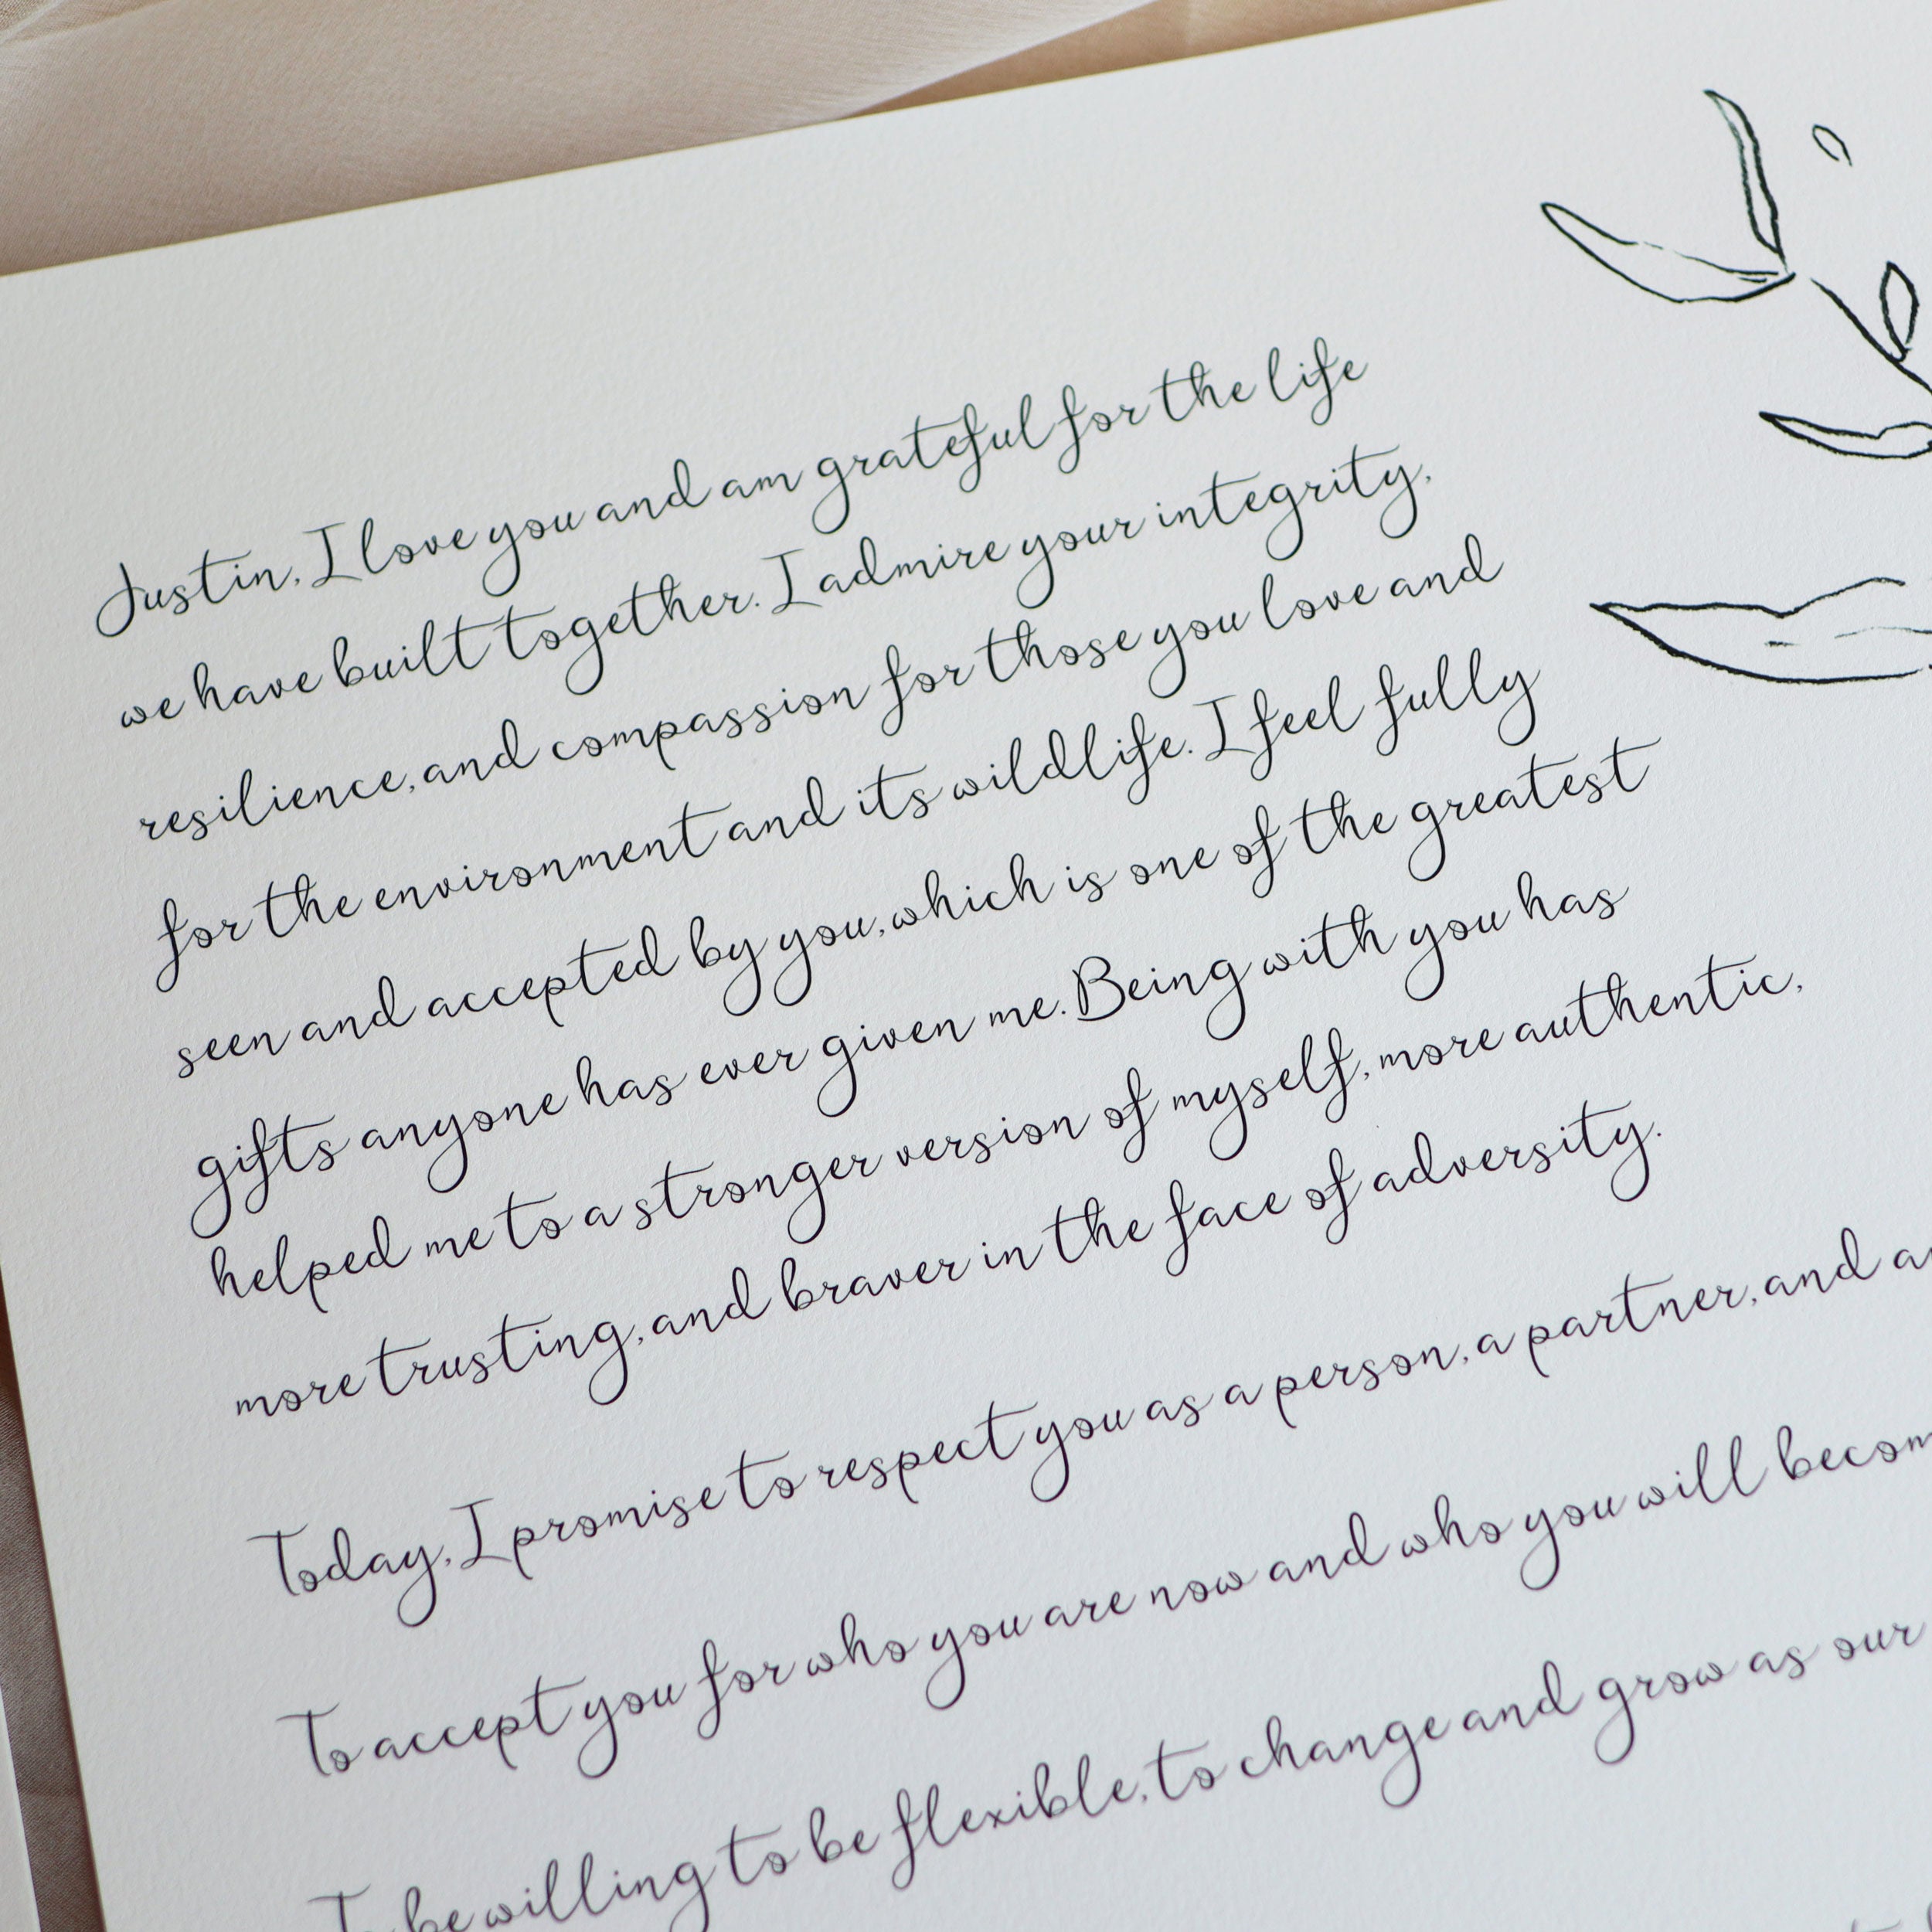 Justin, I love you and am grateful for the life
we have built together. I admire your integrity,
resilience, and compassion for those you love and
for the environment and its wildlife. I feel fully
seen and accepted by you, which is one of the greatest
gifts anyone has ever given me. Being with you has
helped me to a stronger version of myself, more authentic,
more trusting, and braver in the face of adversity.
Today, I promise to respect you as a person, a partner, and
To accept you for who you are now and who you will
To be willing to be flexible, to change and grow as our